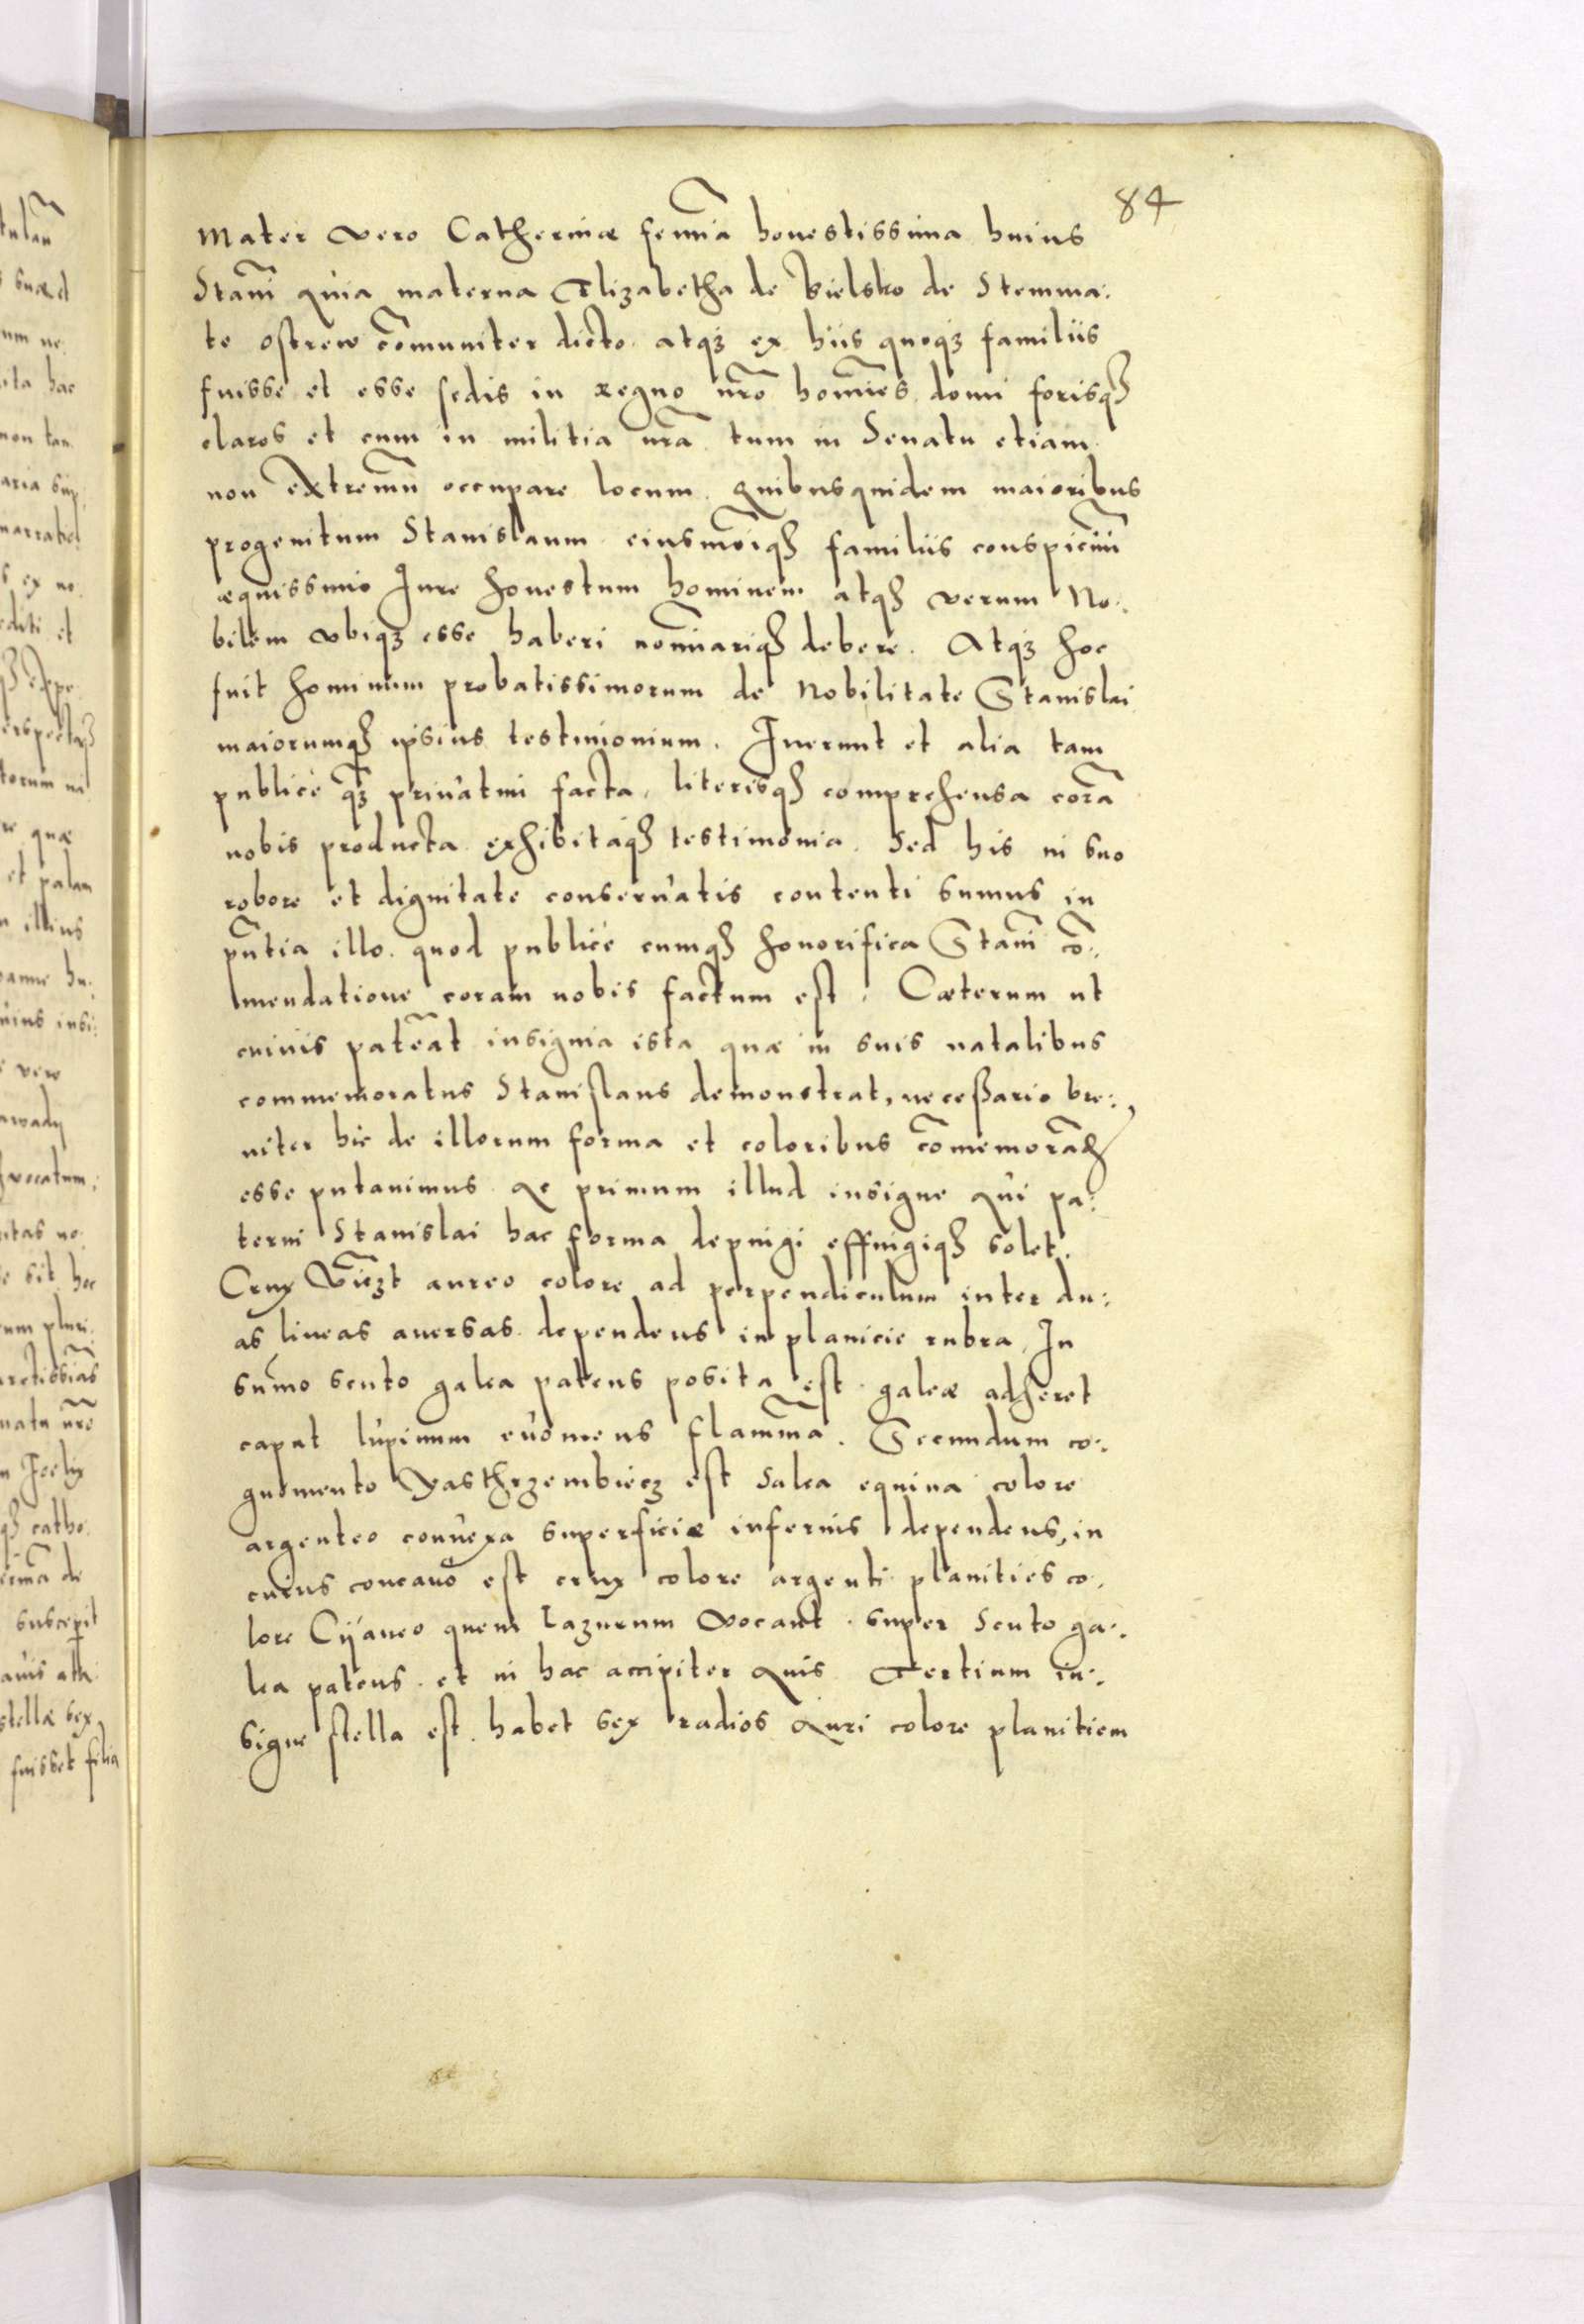 84
Mater vero Catherinæ femia̅ honestissima huius
Stani̅ auia materna Elizabetha de Bielsko de Stemma:
te ostrew co̅muniter dicto. atqꝫ ex hiis quoqꝫ familiis
fuisse et esse sedis in regno nr̅o homi̅es domi forisqꝫ
claros et cum in militia nr̅a tum in Senatu etiam
non extremu̅ occupare locum. quibusquidem maioribus
progenitum Stanislaum eiusmo̅iqꝫ familiis conspicuu̅
æquissimo Iure honestum hominem atqꝫ verum No:
bilem vbiqꝫ esse haberi nomi̅ariqꝫ debere. Atqꝫ hoc
fuit hominum probatissimorum de Nobilitate Stanislai
maiorumqꝫ ipsius testimonium. Fuerunt et alia tam
publice qꝫ priuatim facta, literisqꝫ comprehensa cora̅
nobis producta exhibitaqꝫ testimonia. Sed his in suo
robore et dignitate conseruatis contenti sumus in
pn̅tia illo. quod publice cumqꝫ honorifica Stani̅ co̅:
mendatione coram nobis factum est. Cæterum ut
cuiuis patea̅t insignia ista quæ in suis natalibus
commemoratus Stanislaus demonstrat, necessario bre:
uiter hic de illorum forma et coloribus co̅memora̅d
esse putauimus. Ac primum illud insigne aui pa:
terni Stanislai hac forma depingi effingiqꝫ solet.
Crux aureo colore ad perpendiculum inter du:
as lineas auersas dependens in planicie rubra. In
sum̅o scuto galea patens posita est. galeæ adheret
caput lupinum euomens flamma̅. Secundum co:
gnomento Yasthrzembiecz est Salea equina colore
argenteo conuexa superficiæ infernis dependens, in
cuius concauo est crux colore argenti planities co:
lore Cyaneo quem lazurum vocant. super Scuto ga:
lea patens. et in hac accipiter auis Tertium in:
signe stella est. habet sex radios Auri colore planitiem